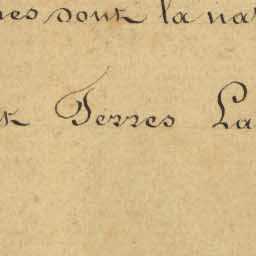 nes dont la nat
t Terres La